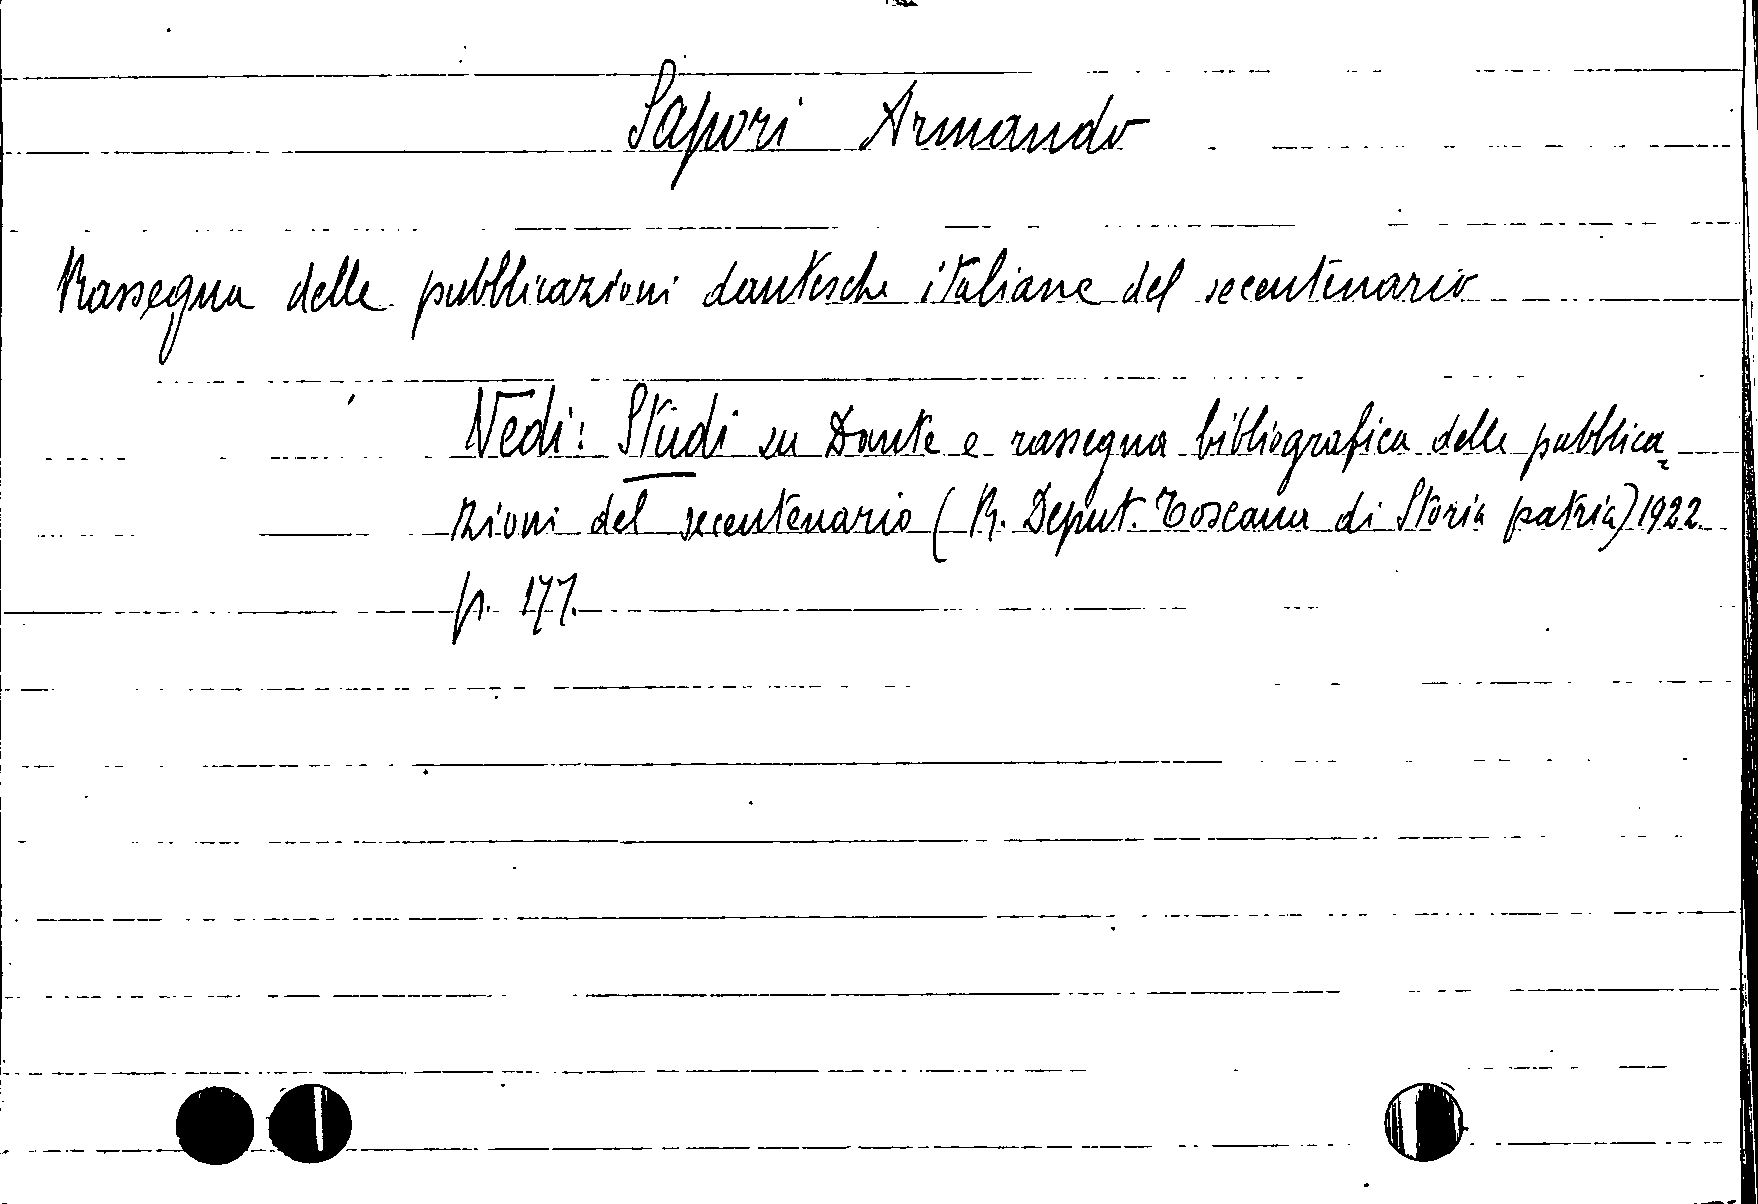 Sapori Armando
Rassegna delle pubblicazioni dantesche italiane del secentenario
Vedi: Studi su Dante e rassegna bibliografica delle pubblica=
zioni del secentenario (R. Deput. Toscana di Storia patria) 1922
p. 177.